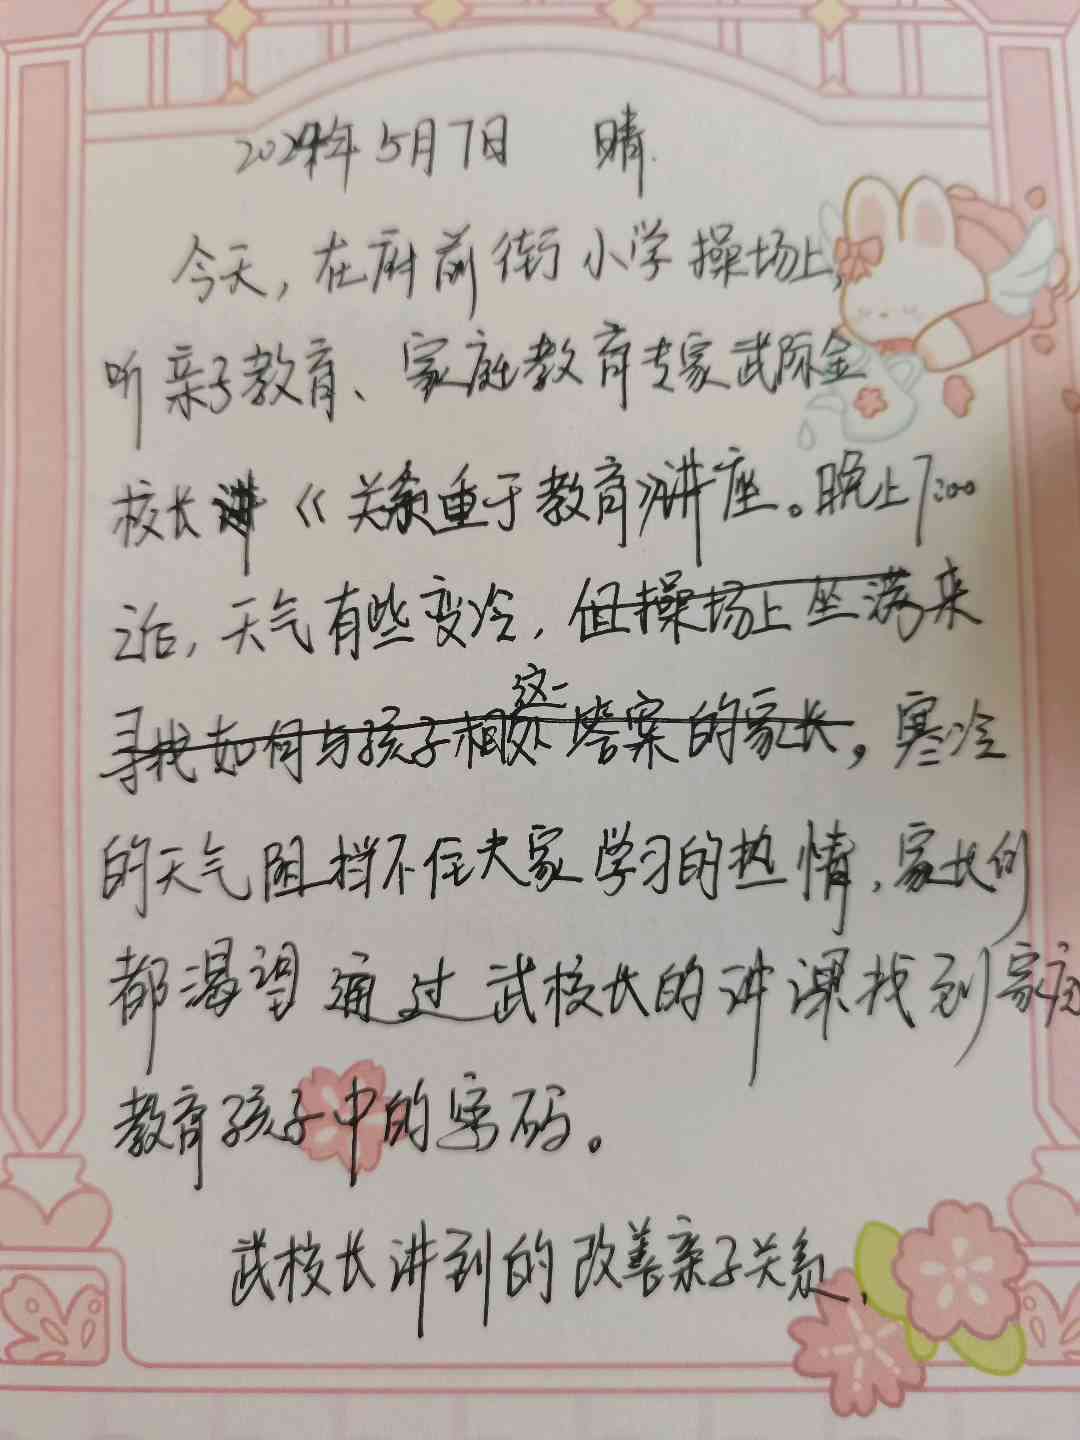 2024年5月7日 晴
今天，在府前街小学操场上，
听亲子教育、家庭教育专家武际金
校长讲《关系重于教育》讲座。晚上7:00
之后，天气有些变冷，但操场上坐满来
这一
寻找如何与孩子相处答案的家长，寒冷
的天气阻挡不住大家学习的热情，家长们
都渴望通过武校长的讲课找到家庭
教育孩子中的密码。
武校长讲到的改善亲子关系，